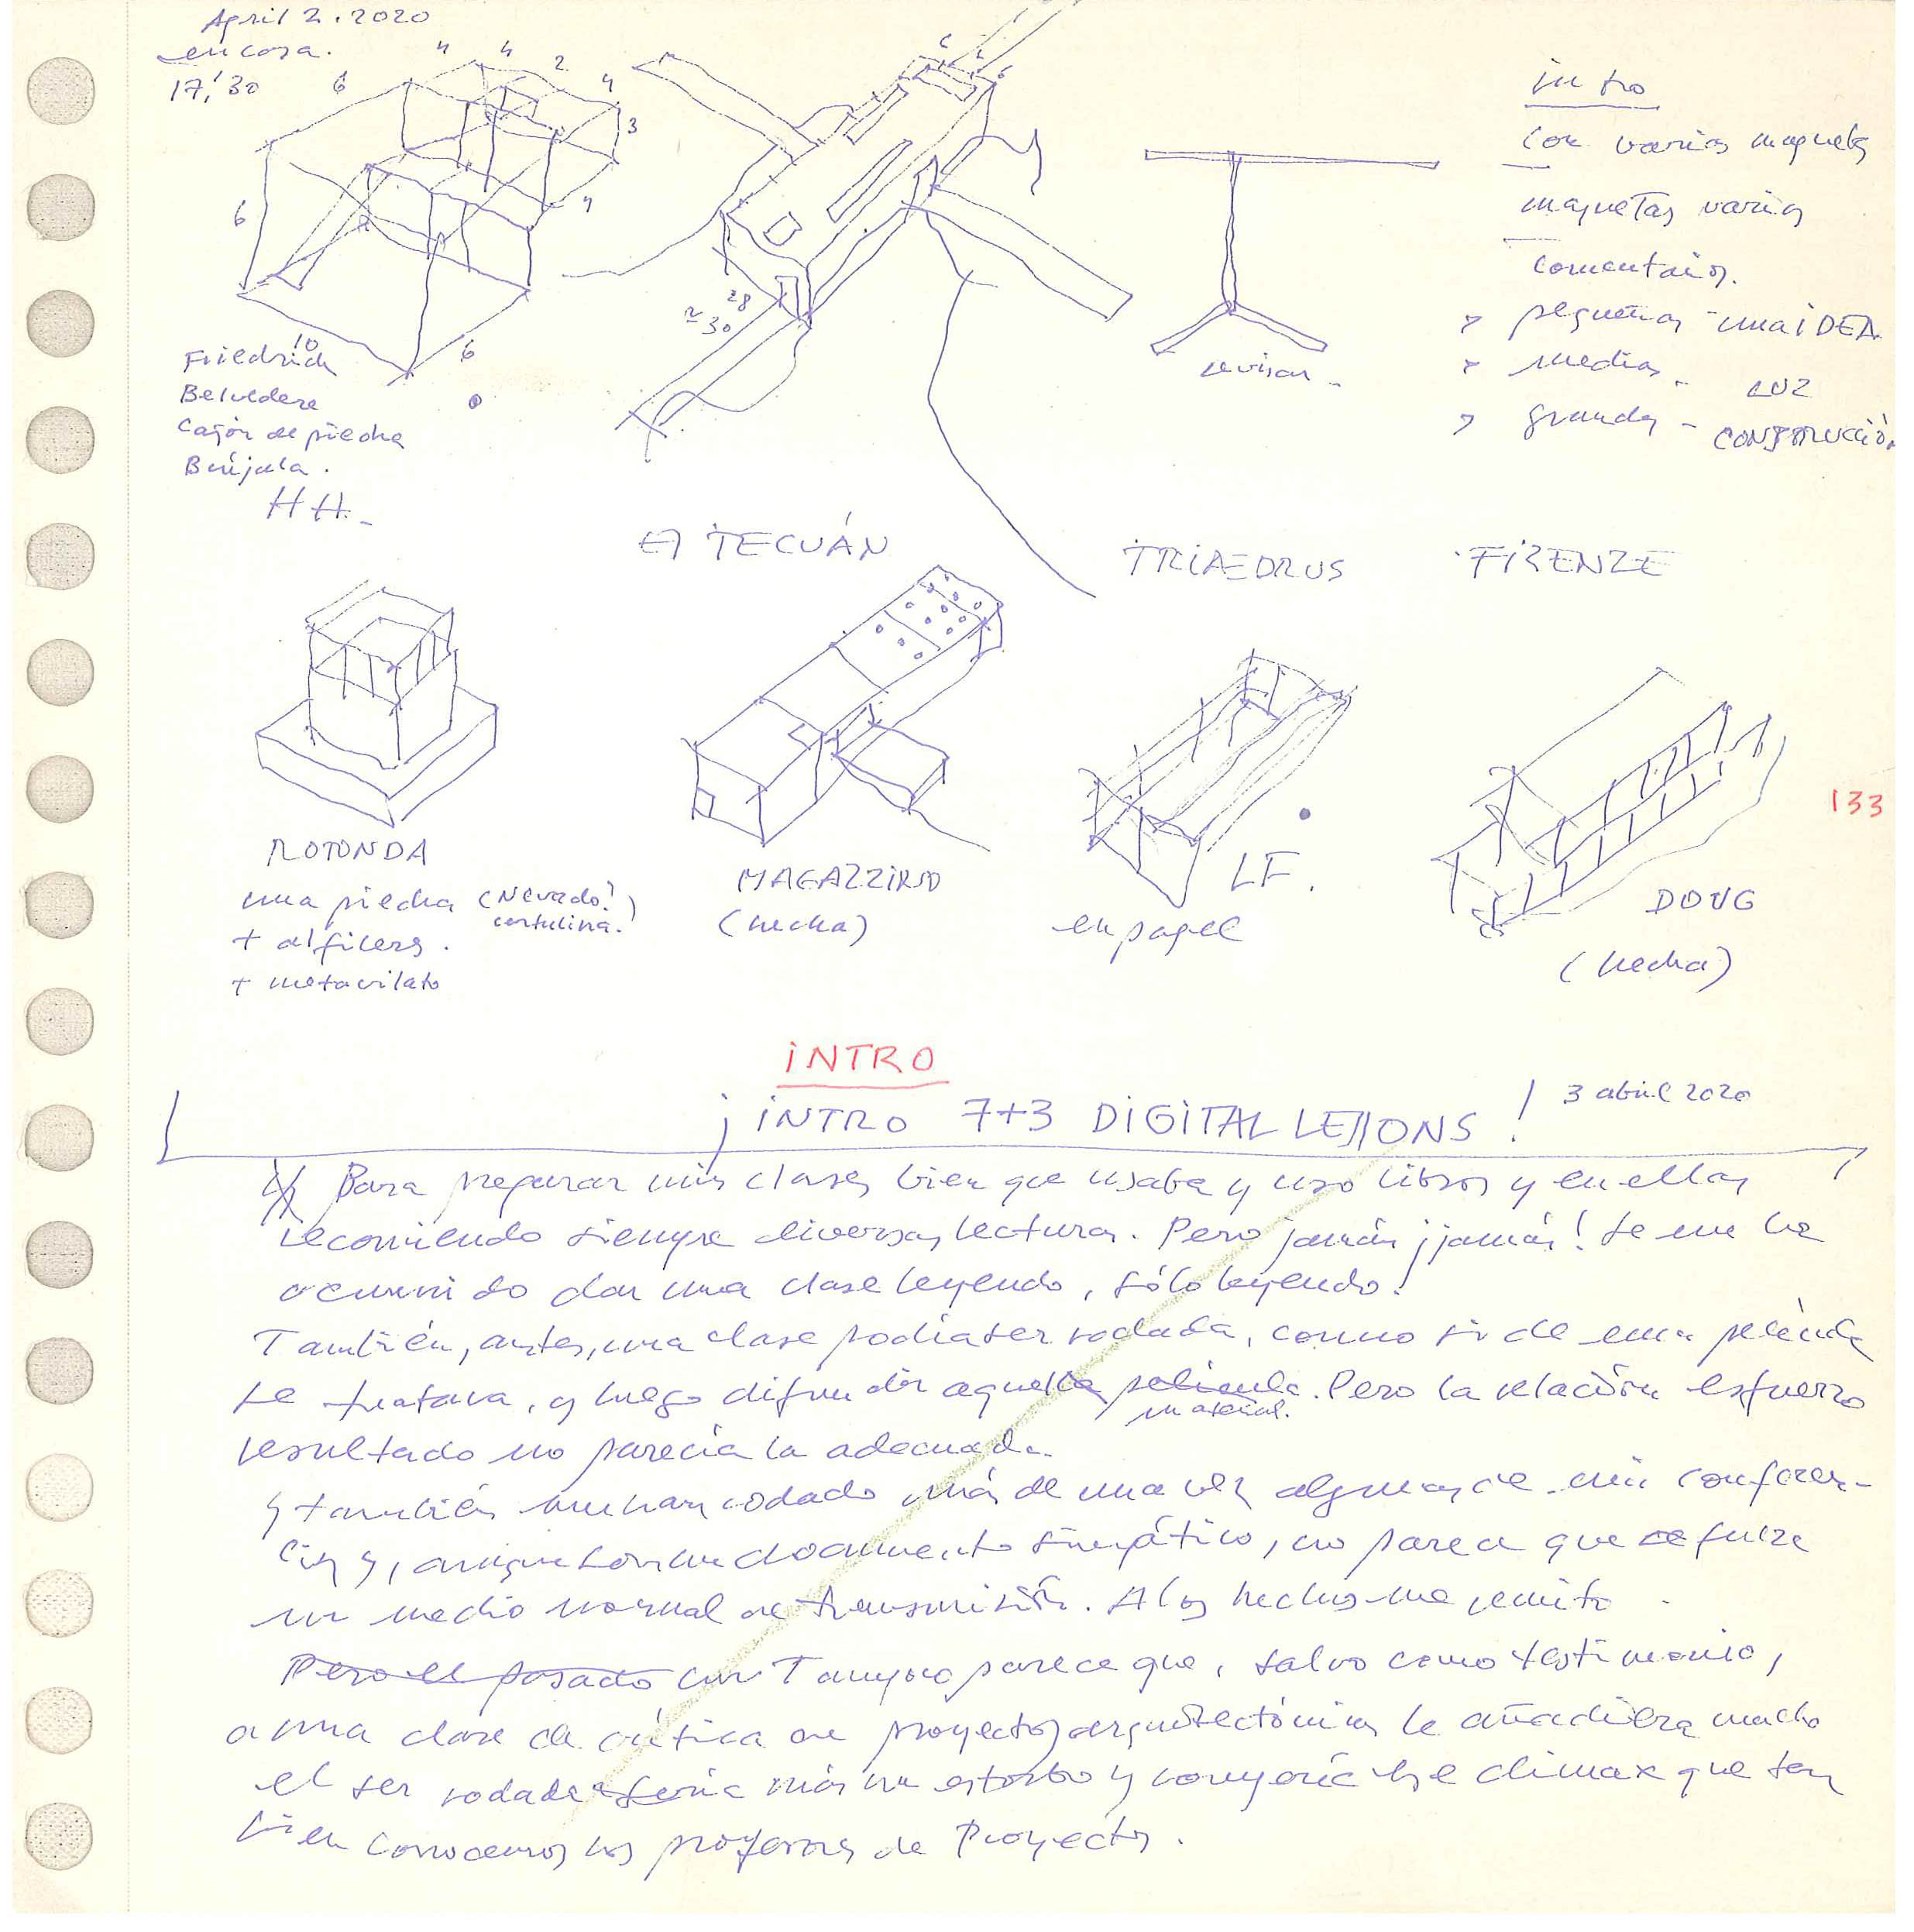 April 2. 2020
en casa.
17,'30
6
4
4
2
4
3
4
6
10
6
6
6
28
~30
intro
con varias maquetas
maquetas varias
comentarios.
> pequeñas - una iDEA
> medias - LUZ
> grandes - CONSTRUCCIÓN
Friedrich
Belvedere
Cajón de piedra
Brújula.
HH.-
revisar -
El TECUÁN
TRIAEDRUS
FIRENZE
133
ROTONDA
una piedra (Nevado!)
cartulina!
+ alfileres.
+ metacrilato
MAGAZZINO
(hecha)
LF.
en papel
DOUG
(hecha)
iNTRO
¡iNTRO 7+3 DIGITAL LESSONS! 3 abril 2020
Para preparar mis clases bien que usaba y uso libros y en ellas
recomiendo siempre diversas lecturas. Pero jamás ¡jamás! se me ha
ocurrido dar una clase leyendo, sólo leyendo!
También, antes, una clase podía ser rodada, como si de una película
se tratara, y luego difundir aquella película. Pero la relación esfuerzo
material.
resultado no parecía la adecuada.
Y también me han rodado más de una vez algunas de mis conferen-
cias y, aunque son un documento simpático, no parece que fuere
un medio normal de transmisión. A los hechos me remito.
Pero el pasado Tampoco parece que, salvo como testimonio,
a una clase de crítica de proyectos arquitectónicos le añadiera mucho
el ser rodada sería más un estorbo y rompería ese climax que tan
bien conocemos los profesores de Proyectos.